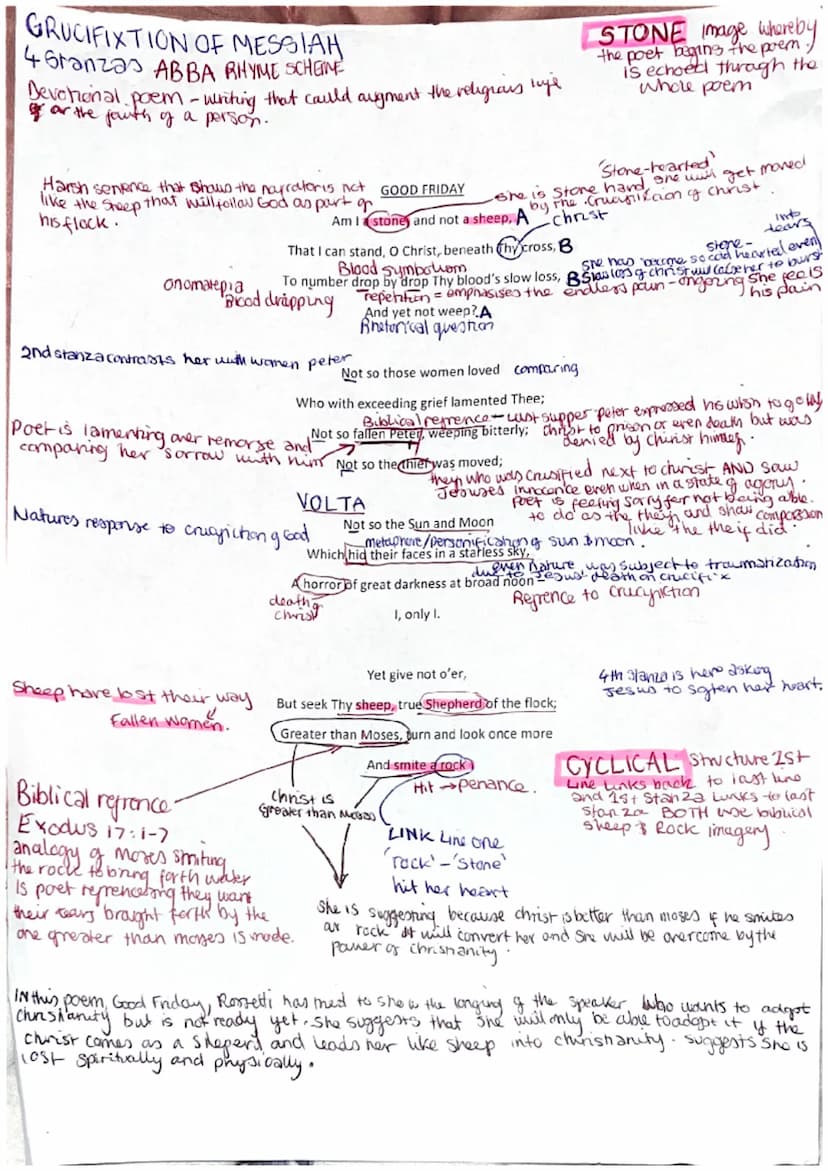 CRUCIFIXTION OF MESSIAH
4 Stanzas ABBA RHYME SCHEME
Devotional poem - writing that could augment the religious life
or the faith of a person.
STONE image whereby
the poet begins the poem.
is echoed through the
whole poem
Harsh sentence that shows the narrator is not
like the sheep that will follow God as part of
his flock.
GOOD FRIDAY
'Stone-hearted'
she is stone hard, she will get moved
by the crucifixion of christ.
Am I a stone, and not a sheep, A
christ
That I can stand, O Christ, beneath Thy cross, B
Blood symbolism
To number drop by drop Thy blood's slow loss, B
she has become so cold hearted even
stone-
into
tears
slow loss of christ will cause her to burst
onomatepia
Blood dripping
repetition = emphasises the endless pain - ongoing she feels
his pain
And yet not weep? A
Rhetorical question
2nd stanza contrasts her with women peter
Not so those women loved comparing
Who with exceeding grief lamented Thee;
Biblical refrence - last supper peter expressed his wish to go by
christ to prison or even death but was
denied by christ himself.
Not so fallen Peter, weeping bitterly;
Poet is lamenting over remorse and
comparing her sorrow with him
Not so the thief was moved;
they who was crusified next to christ AND saw
Jesuses innocence even when in a state of agony.
Poet is feeling sorry for not being able
to do as the theif and show compassion
like the theif did.
VOLTA
Natures response to crucifiction of God
Not so the Sun and Moon
metaphore/personification of sun & moon.
Which hid their faces in a starless sky,
even nature was subject to traumatization
due to Jesus' death on crucifix
A horror of great darkness at broad noon–
death of
christ
Refrence to crucifiction
I, only I.
Yet give not o'er,
4th stanza is here asking
Jesus to soften her heart.
Sheep have lost their way
Fallen women.
But seek Thy sheep, true Shepherd of the flock;
Greater than Moses, turn and look once more
And smite a rock.
Hit → penance.
CYCLICAL structure 1st
Line Links back to last line
and 1st stanza Links to last
stanza BOTH use biblical
sheep & Rock imagery.
Christ is
greater than Moses
Biblical refrence
Exodus 17:1-7
analogy of moses smiting
the rock to bring forth water
is poet refrencing they want
their tears brought forth by the
one greater than moses is made.
LINK Line one
'rock' - 'Stone'
hit her heart
She is suggesting because christ is better than moses if he smites
a rock it will convert her and she will be overcome by the
power of christianity.
In this poem, Good Friday, Rossetti has tried to show the longing of the speaker who wants to adopt
christianity but is not ready yet. She suggests that she will only be able to adopt it if the
christ comes as a sheperd and leads her like sheep into christianity. suggests she is
lost spiritually and physically.